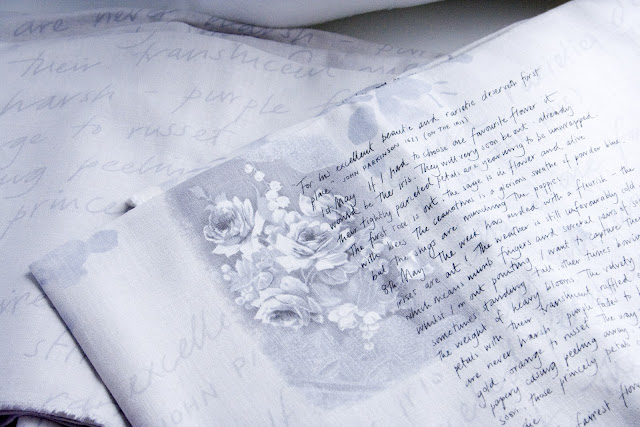 are never harsh - purp
their translucent
harsh - purple f
ge to russet
peeling
prince
"For his excellent beautie and varietie deserveth first
place" JOHN PARKINSON (ON THE IRIS)
1st May If I had to choose one favourite flower it
would be the iris. They will very soon be out - already
their tightly parcelled petals are yearning to be unwrapped.
The first rose is out, the sage is in flower and alive
with bees. The ceanothus is a glorious swathe of powder blue.
but the slugs are marauding the poppies.
8th May. The week has ended with a flourish - the
irises are out! The weather is still unfavourably cold
which means numb fingers and several pairs of
whilst I'm out painting. I want to capture
sometimes standing tall, other times
the weight of heavy blooms. The velvety
petals with their translucent ruffled
are never harsh - purple fades to
gold, orange to russet. The
papery casing peeling away
soon, those princely petal
fairest flo
excelle
JOHN P